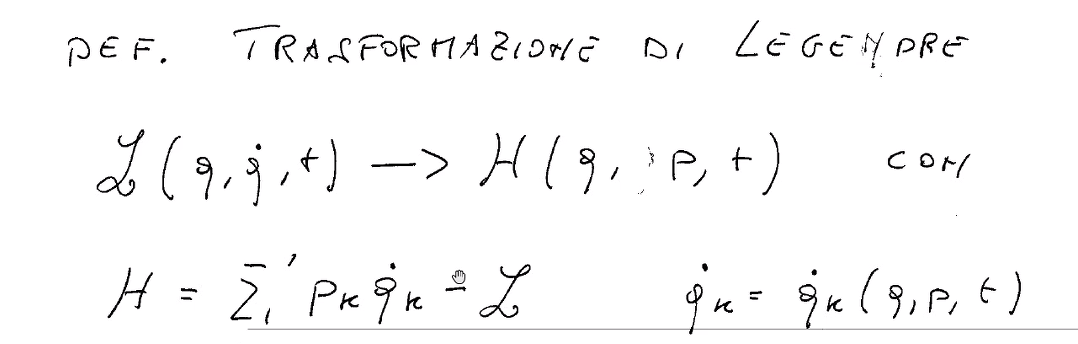 DEF. TRASFORMAZIONE DI LEGENDRE
ℒ(q, q̇, t) —> H(q, p, t) CON
H = Σ' pₖ q̇ₖ - ℒ q̇ₖ = q̇ₖ(q, p, t)